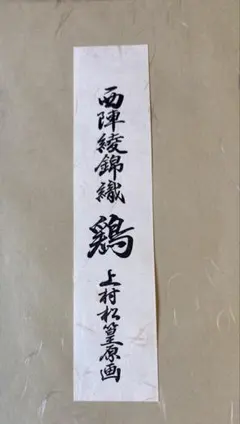 西陣綾錦織 鶏 上村松篁原画